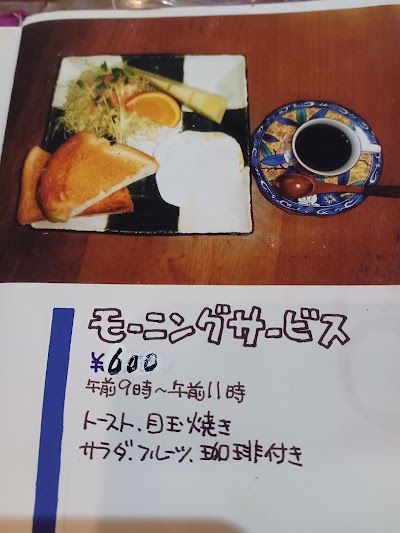 モーニングサービス
¥600
午前9時~午前11時
トースト、目玉焼き
サラダ、フルーツ、珈琲付き